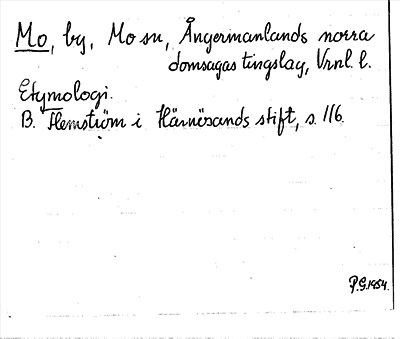 Mo, by, Mo sn, Ångermanlands norra
domsagas tingslag, Vrnl. l.
Etymologi.
B. Flemström i Härnösands stift, s. 116.
P.G. 1954.